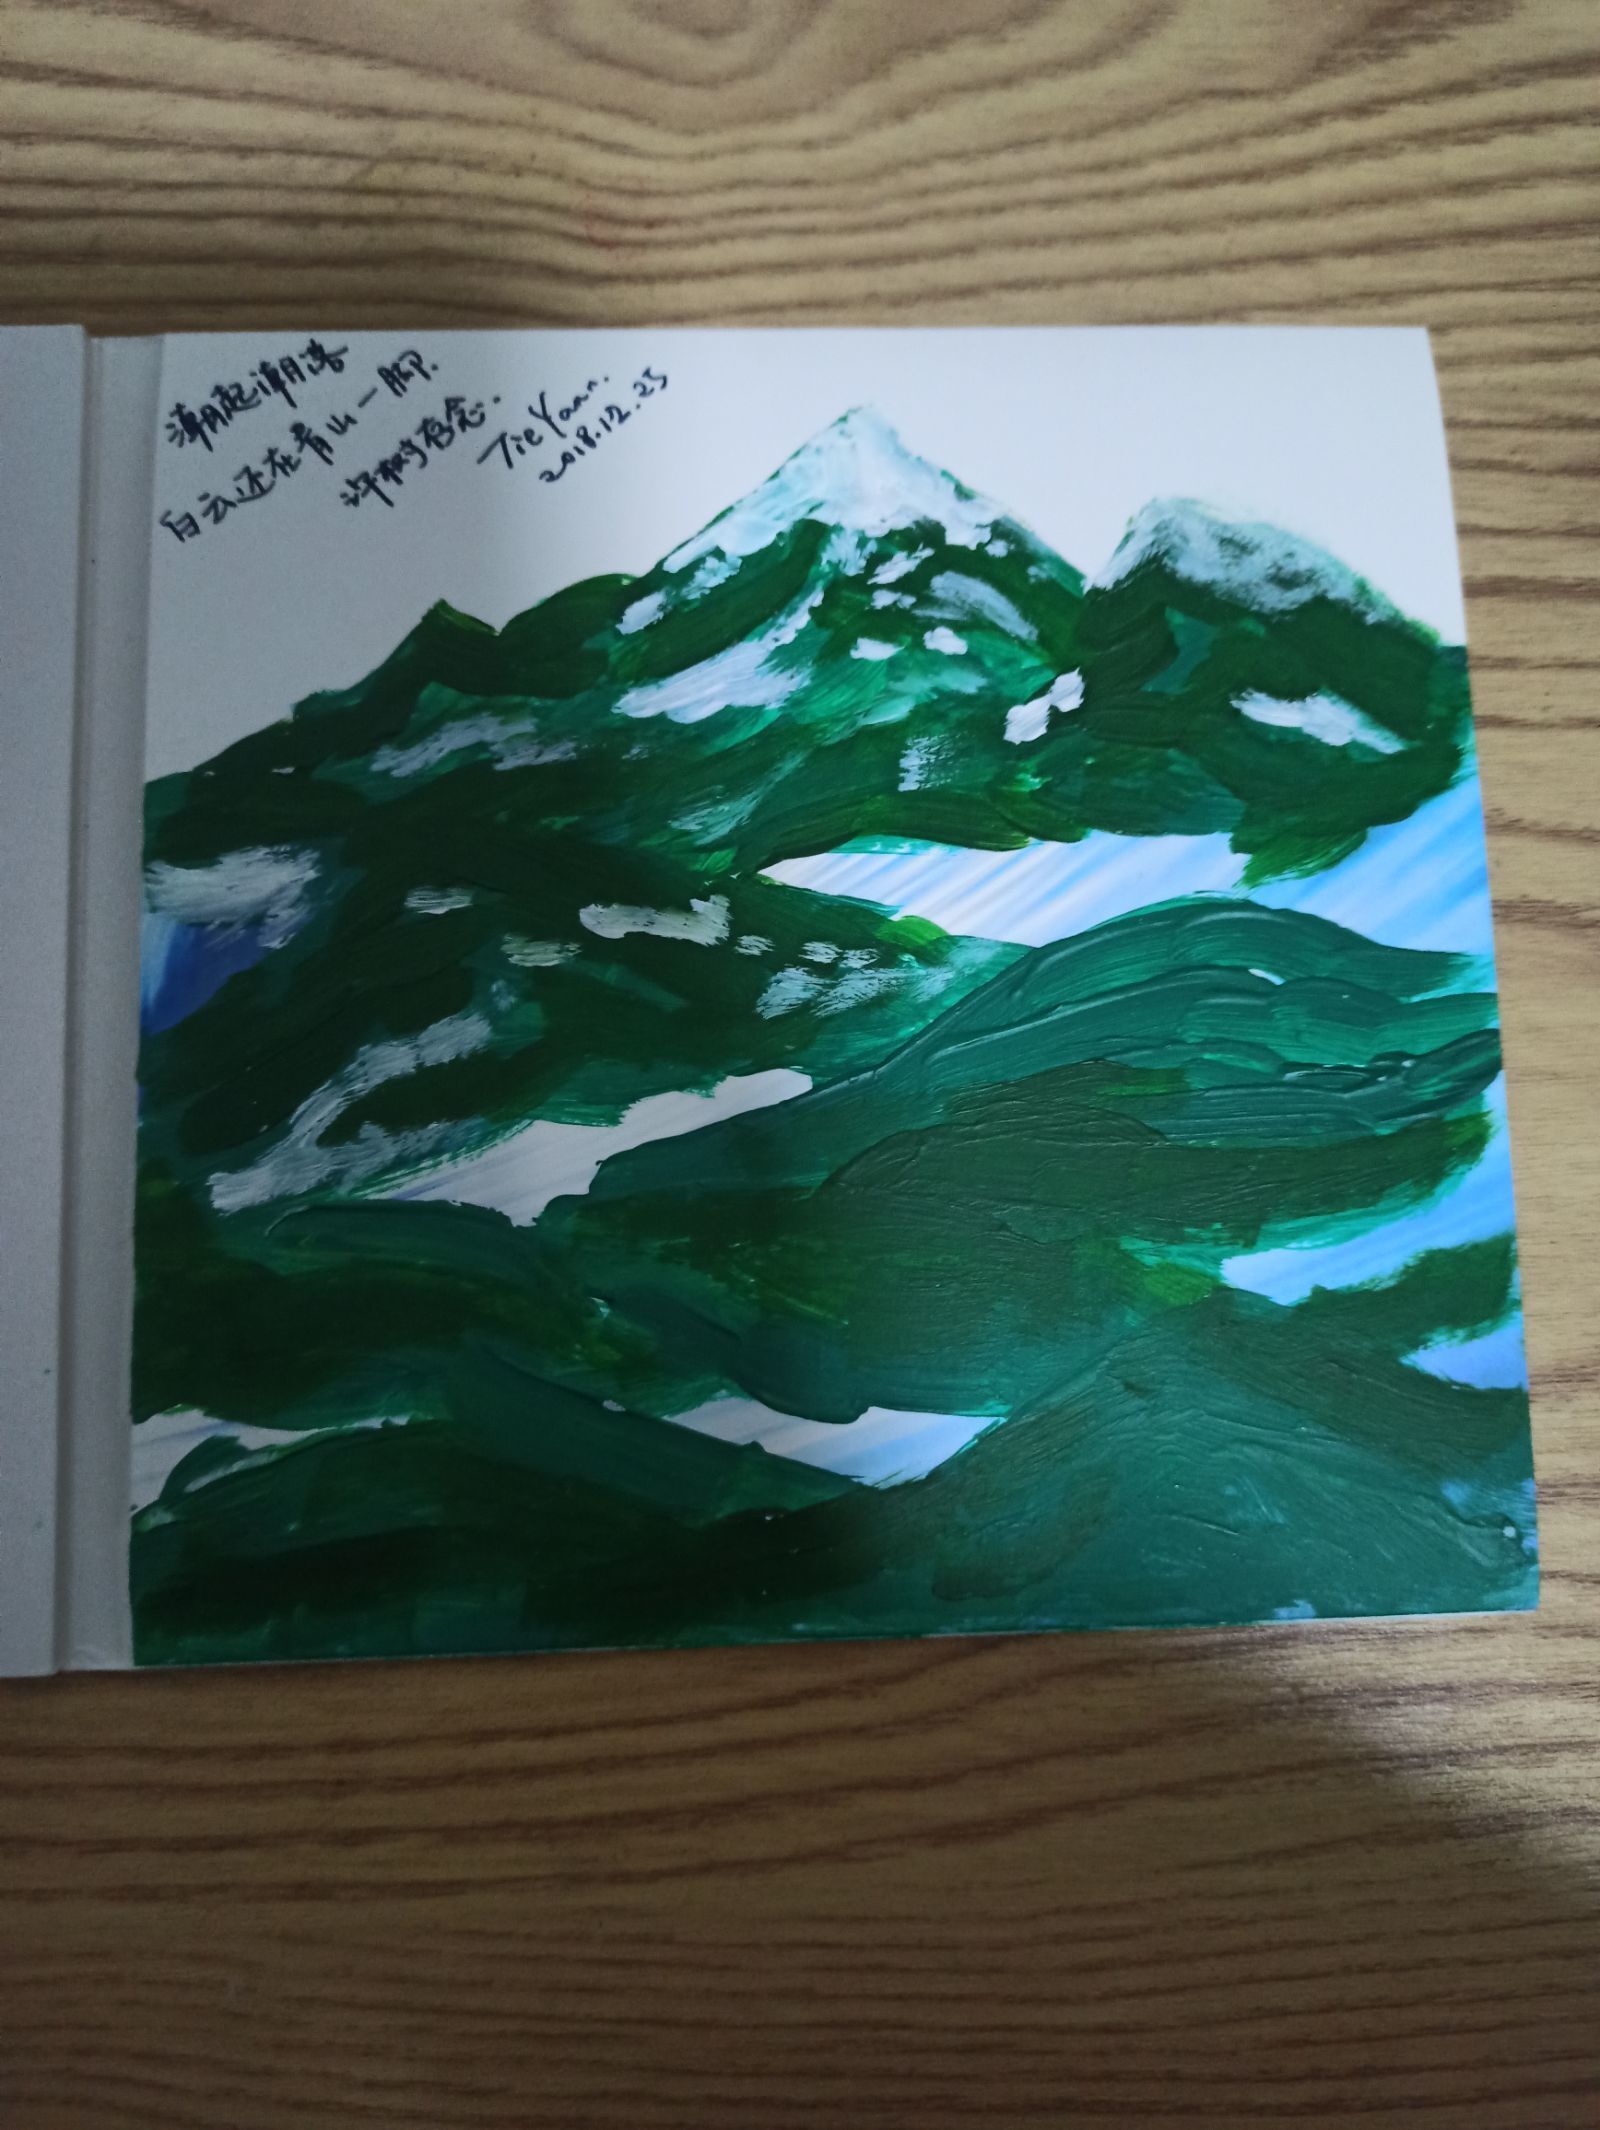 潮起潮落
白云还在青山一脚.
存念.
Tie Yann.
2018.12.25